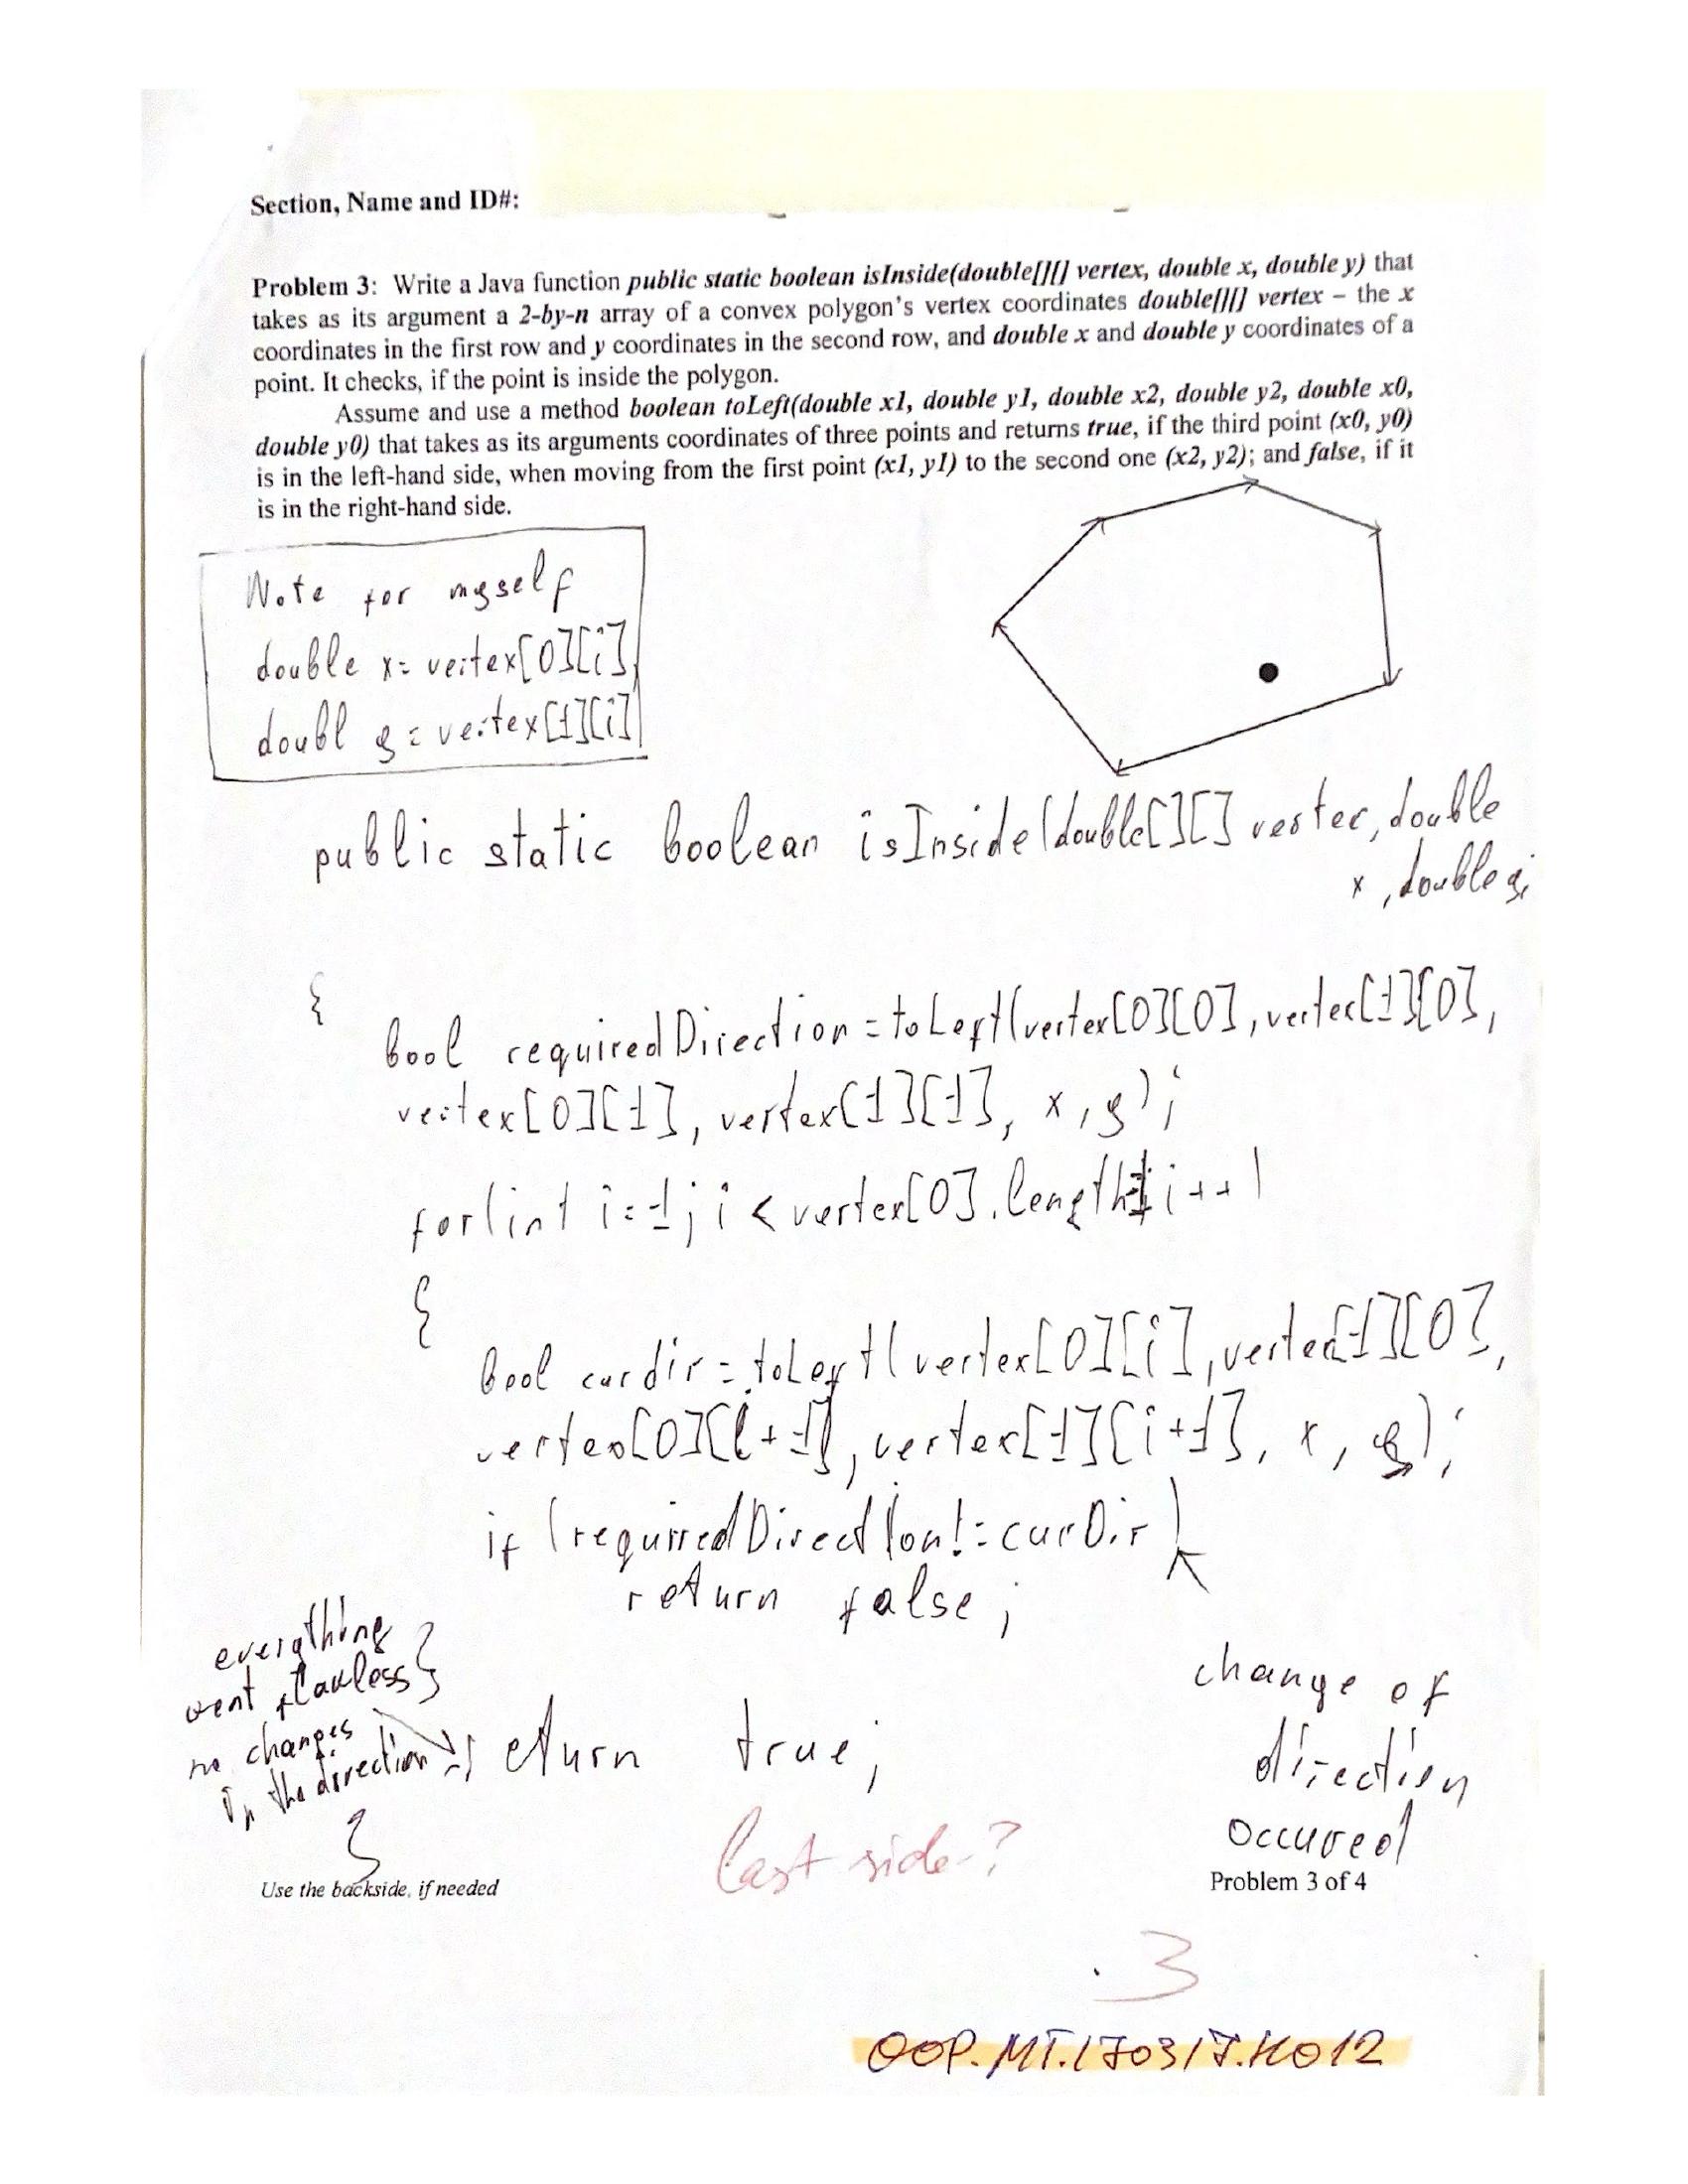 Section, Name and ID#:
Problem 3: Write a Java function public static boolean isInside(double[][] vertex, double x, double y) that
takes as its argument a 2-by-n array of a convex polygon's vertex coordinates double[][] vertex – the x
coordinates in the first row and y coordinates in the second row, and double x and double y coordinates of a
point. It checks, if the point is inside the polygon.
Assume and use a method boolean toLeft(double x1, double y1, double x2, double y2, double x0,
double y0) that takes as its arguments coordinates of three points and returns true, if the third point (x0, y0)
is in the left-hand side, when moving from the first point (x1, y1) to the second one (x2, y2); and false, if it
is in the right-hand side.
Note for myself
double x= vertex[0][i],
doubl y = vertex[1][i]
public static boolean isInside(double[][] vertex, double
x, double y)
{
bool requiredDirection = toLeft(vertex[0][0], vertex[1][0],
vertex[0][1], vertex[1][1], x, y);
for(int i=1; i < vertex[0].length; i++)
{
bool curdir = toLeft(vertex[0][i], vertex[1][0],
vertex[0][i+1], vertex[1][i+1], x, y);
if (requiredDirection != curDir)
return false;
everything
went flawless }
no changes
in the direction
return true;
change of
direction
occured
}
last side?
Use the backside, if needed
Problem 3 of 4
3
OOP.MT.170317.H012